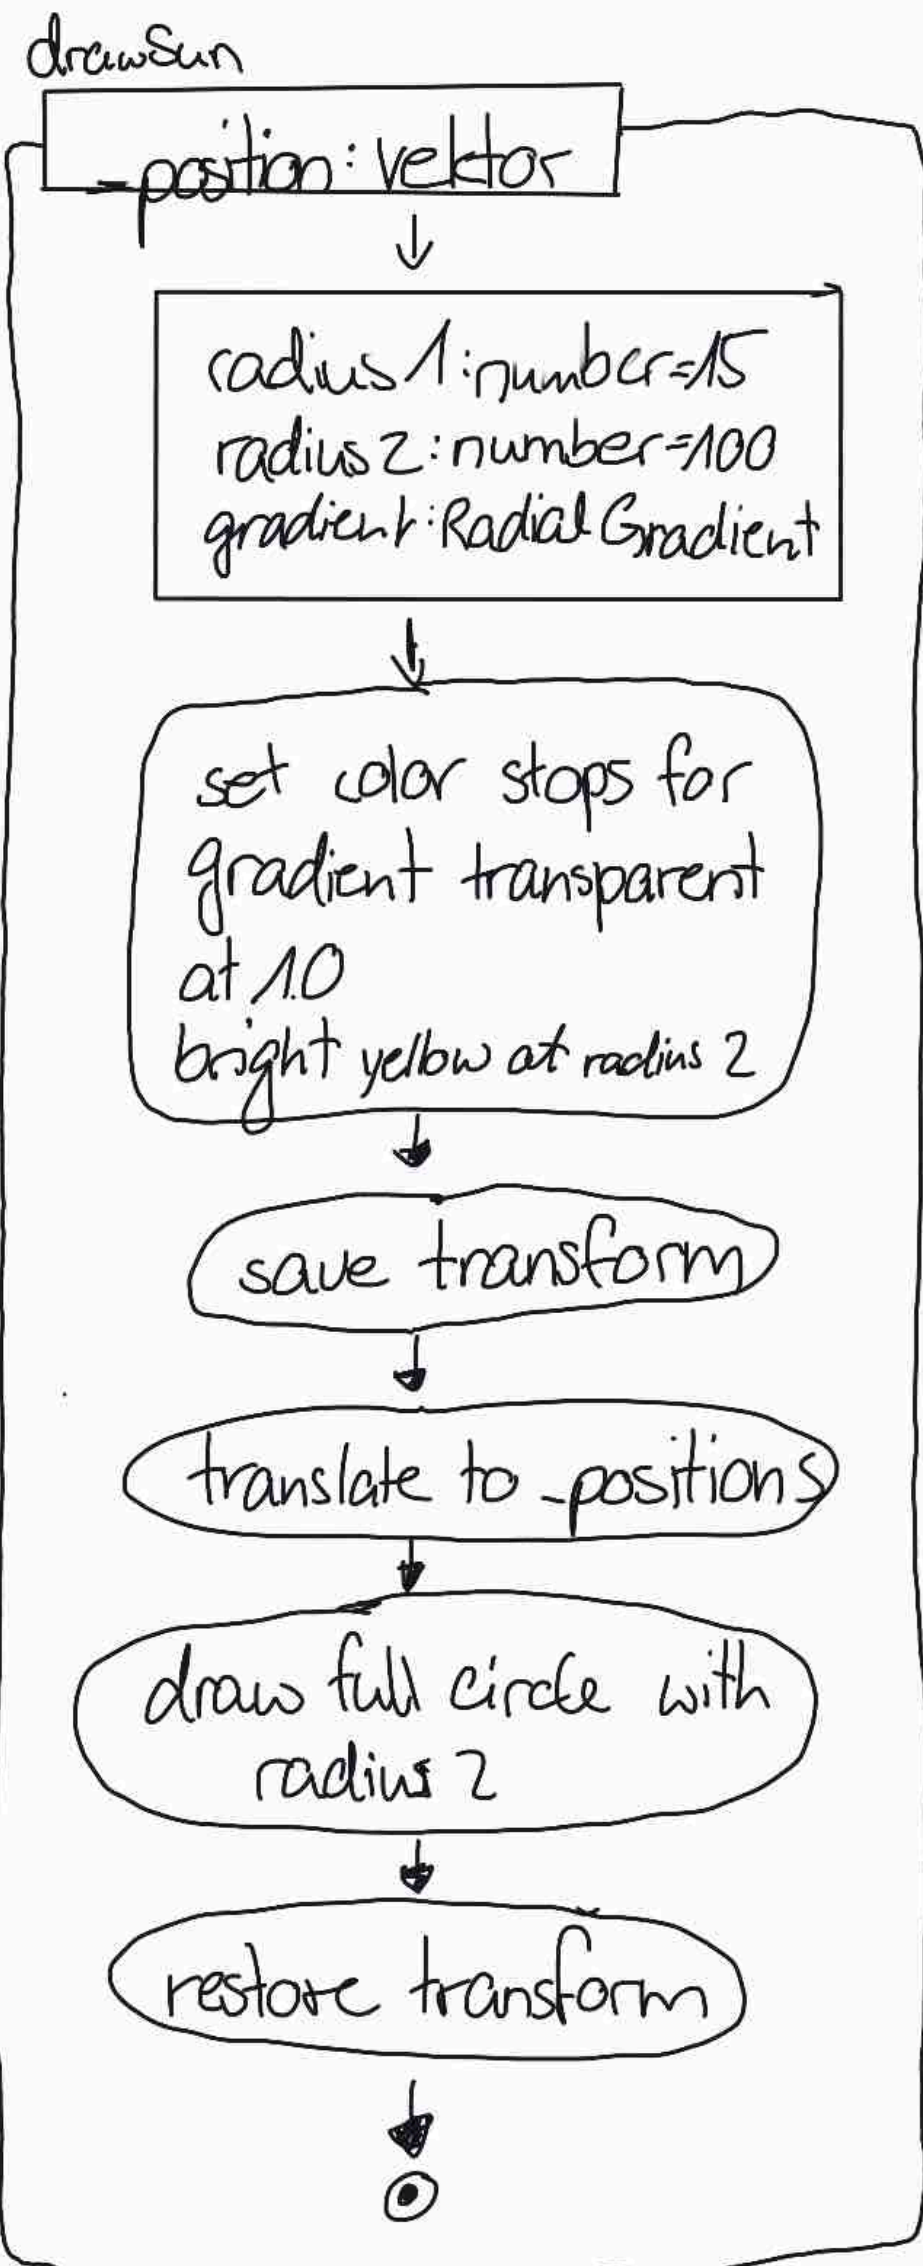 drawSun
_position: Vektor
radius1:number=15
radius2:number=100
gradient:RadialGradient
set color stops for
gradient transparent
at 1.0
bright yellow at radius 2
save transform
translate to _positions
draw full circle with
radius 2
restore transform